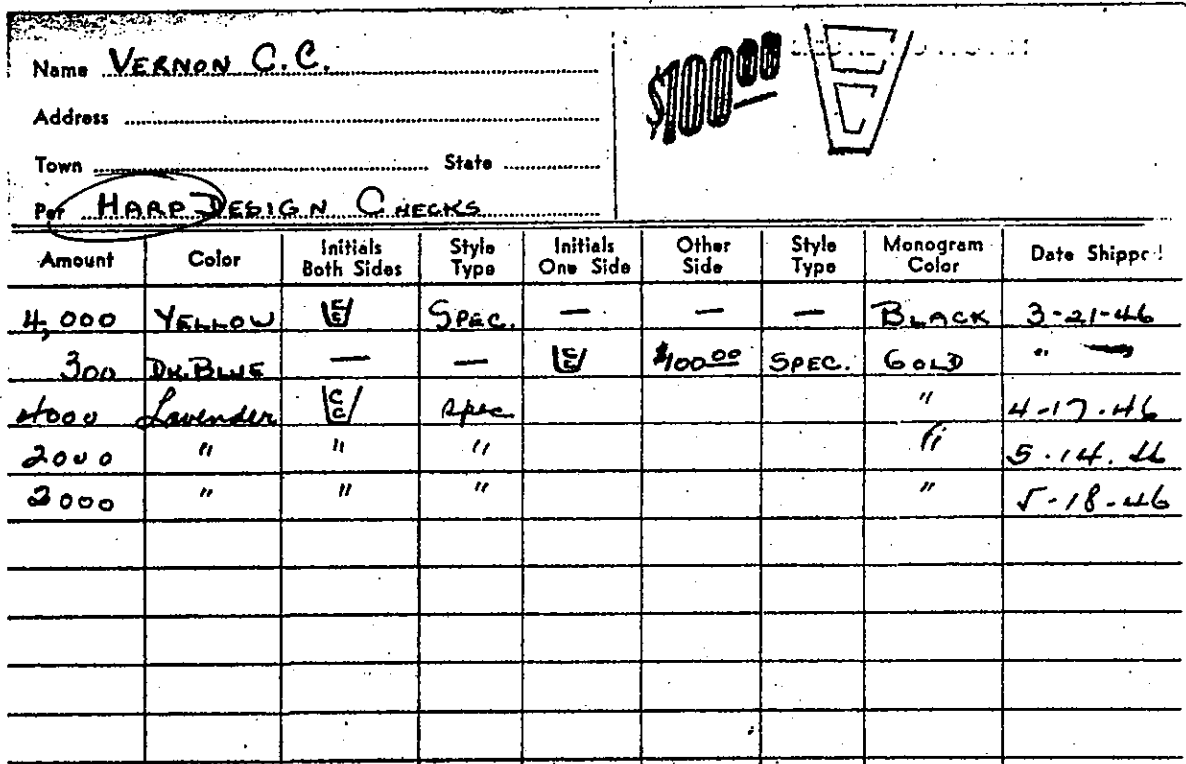 Name VERNON C.C.
$100 00
Address
Town State
Per HARP DESIGN CHECKS
Amount Color Initials Both Sides Style Type Initials One Side Other Side Style Type Monogram Color Date Shippe
4,000 YELLOW SPEC. — — — BLACK 3-21-46
300 DK. BLUE — — $100 00 SPEC. GOLD "
4000 Lavender C C Spec " 4-17-46
2000 " " " " 5-14-46
2000 " " " " 5-18-46